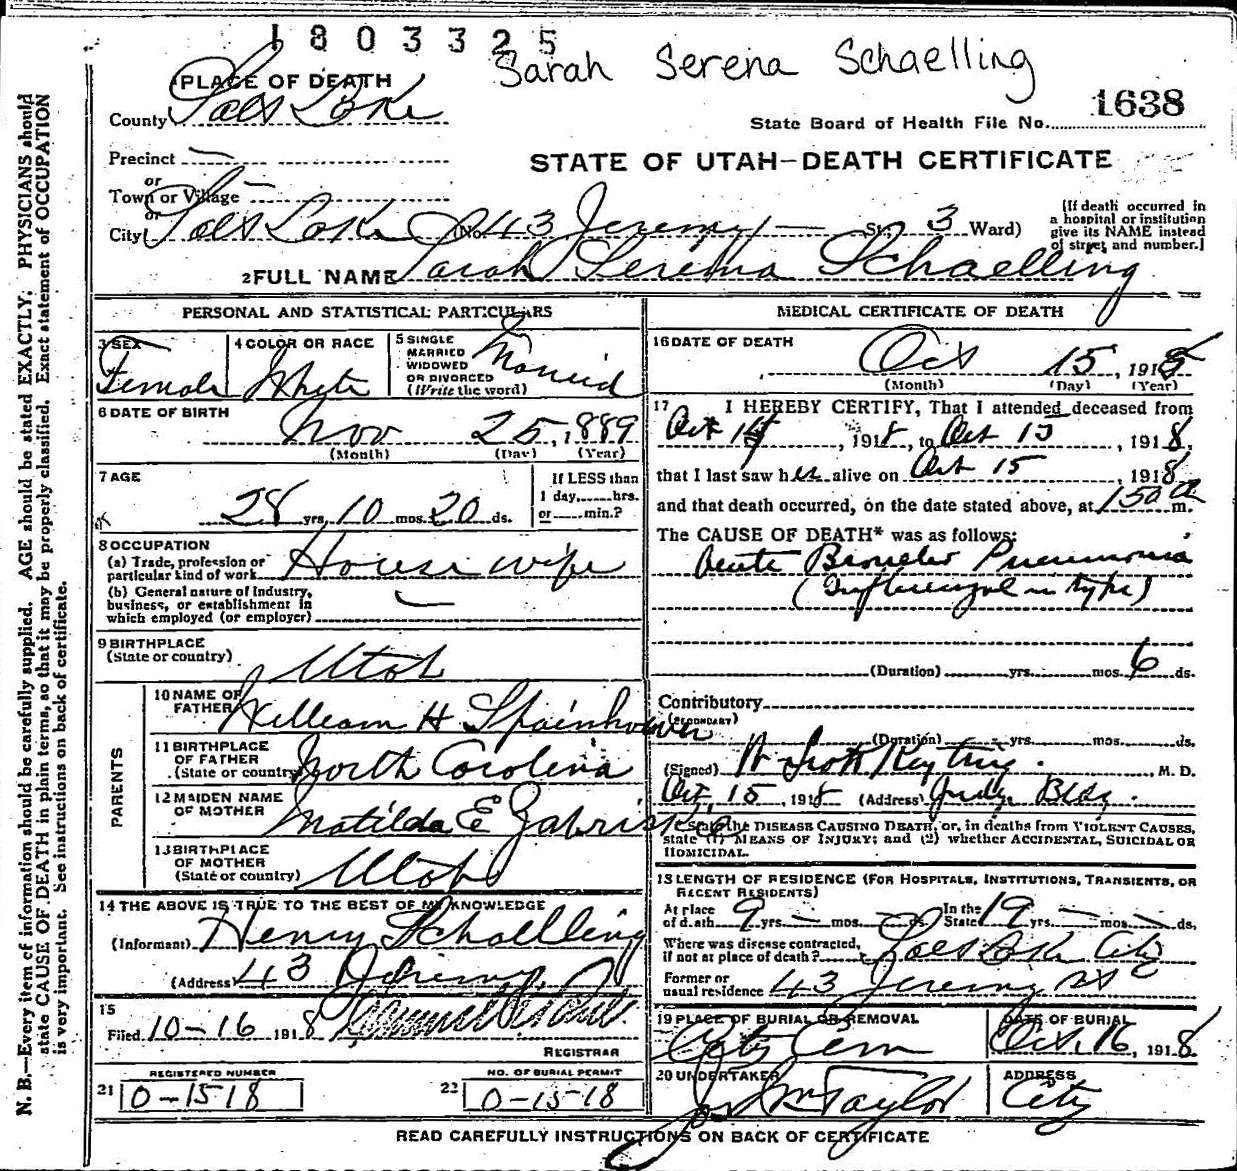 1803325
Sarah Serena Schaelling
PLACE OF DEATH
County Salt Lake
1638
State Board of Health File No.
Precinct
STATE OF UTAH—DEATH CERTIFICATE
or
Town or Village
or
City Salt Lake No. 43 Jeremy St.; 3 Ward)
[If death occurred in a hospital or institution give its NAME instead of street and number.]
2 FULL NAME Sarah Serena Schaelling
PERSONAL AND STATISTICAL PARTICULARS
3 SEX
Female
4 COLOR OR RACE
White
5 SINGLE
MARRIED
WIDOWED
OR DIVORCED
(Write the word)
Married
6 DATE OF BIRTH
Nov 25, 1889
(Month) (Day) (Year)
7 AGE
28 yrs. 10 mos. 20 ds.
If LESS than
1 day,......hrs.
or......min.?
8 OCCUPATION
(a) Trade, profession or
particular kind of work House wife
(b) General nature of industry,
business, or establishment in
which employed (or employer)
9 BIRTHPLACE
(State or country) Utah
PARENTS
10 NAME OF
FATHER William H Spainhower
11 BIRTHPLACE
OF FATHER
(State or country) North Carolina
12 MAIDEN NAME
OF MOTHER Matilda E
13 BIRTHPLACE
OF MOTHER
(State or country) Utah
14 THE ABOVE IS TRUE TO THE BEST OF MY KNOWLEDGE
(Informant) Henry Schaelling
(Address) 43 Jeremy
15
Filed 10-16 1918
REGISTRAR
REGISTERED NUMBER
21 0-1518
NO. OF BURIAL PERMIT
22 0-15-18
MEDICAL CERTIFICATE OF DEATH
16 DATE OF DEATH
Oct 15, 1918
(Month) (Day) (Year)
17 I HEREBY CERTIFY, That I attended deceased from
Oct 14, 1918, to Oct 15, 1918,
that I last saw her alive on Oct 15, 1918
and that death occurred, on the date stated above, at 150 a m.
The CAUSE OF DEATH* was as follows:
Acute Broncho Pneumonia
(Influenzal in type)
(Duration) yrs. mos. 6 ds.
Contributory
(SECONDARY)
(Duration) yrs. mos. ds.
(Signed) W Scott Keyting. M. D.
Oct, 15, 1918 (Address) Judge Bldg.
*State the DISEASE CAUSING DEATH, or, in deaths from VIOLENT CAUSES,
state (1) MEANS OF INJURY; and (2) whether ACCIDENTAL, SUICIDAL OR
HOMICIDAL.
18 LENGTH OF RESIDENCE (FOR HOSPITALS, INSTITUTIONS, TRANSIENTS, OR
RECENT RESIDENTS)
At place
of death 9 yrs. mos. ds.
In the
State 19 yrs. mos. ds.
Where was disease contracted,
if not at place of death? Salt Lake City
Former or
usual residence 43 Jeremy St
19 PLACE OF BURIAL OR REMOVAL
City Cem
DATE OF BURIAL
Oct, 16, 1918
20 UNDERTAKER
Jos Wm Taylor
ADDRESS
City
READ CAREFULLY INSTRUCTIONS ON BACK OF CERTIFICATE
N. B.—Every item of information should be carefully supplied. AGE should be stated EXACTLY; PHYSICIANS should
state CAUSE OF DEATH in plain terms, so that it may be properly classified. Exact statement of OCCUPATION
is very important. See instructions on back of certificate.